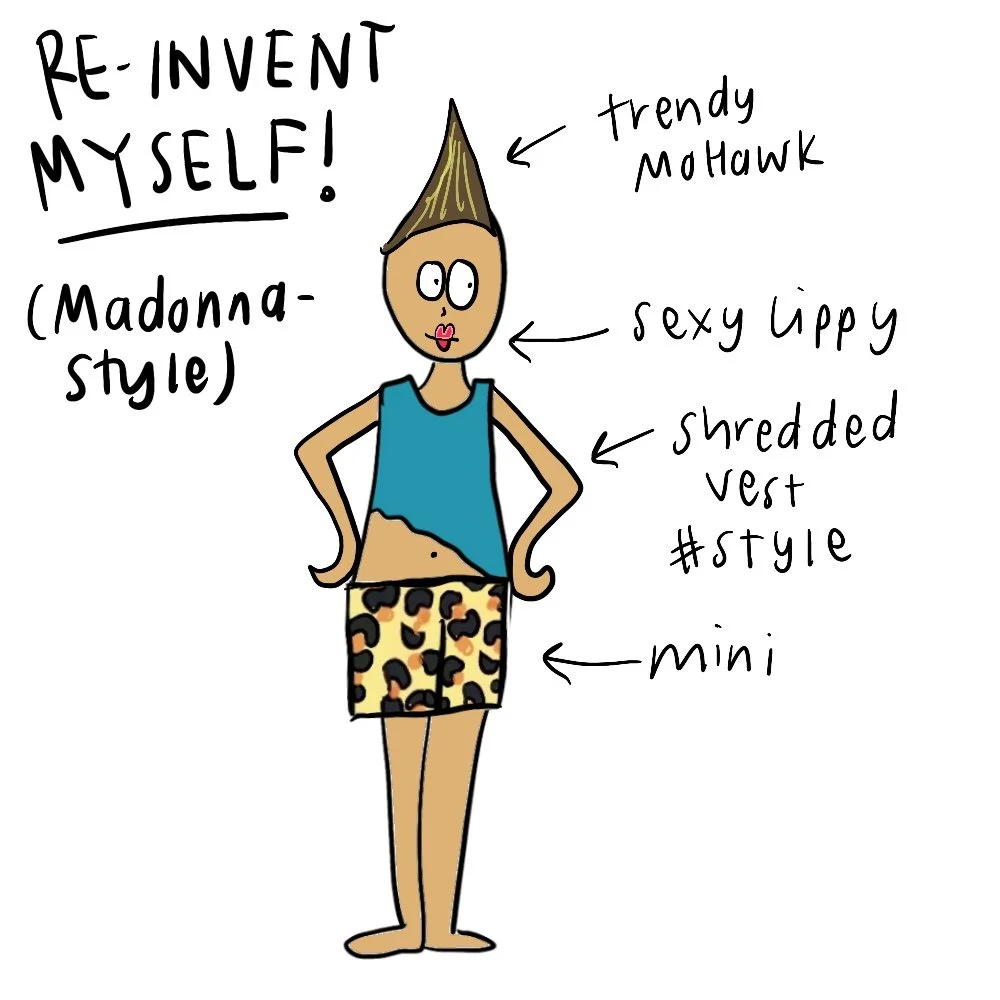 RE-INVENT
MYSELF!
(Madonna-
style)
trendy
MoHawk
sexy lippy
shredded
vest
#style
mini